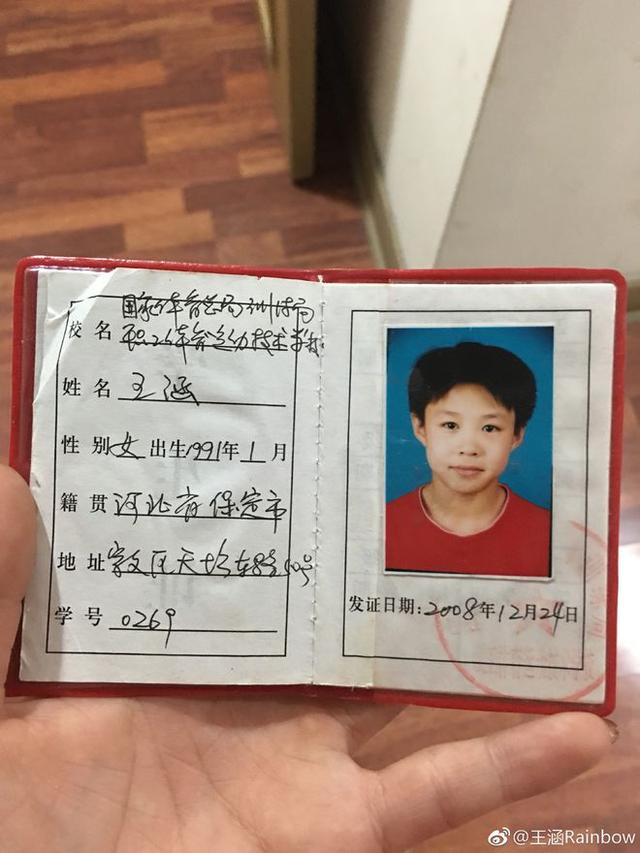 国家体育总局训练局
校名 职工体育运动技术学校
姓名 王涵
性别 女 出生 1991年 1 月
籍贯 河北省保定市
地址 崇文区天坛东路50号
学号 0269
发证日期:2008年12月24日
@王涵Rainbow